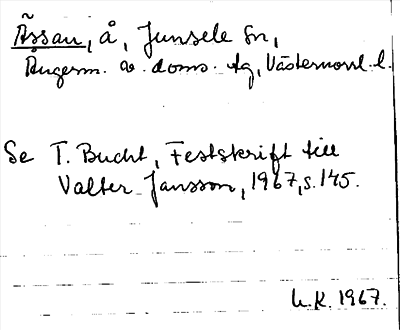 Åssau, å, Junsele sn,
Ångerm. v. doms. tg, Västernorrl. l.
Se T. Bucht, Festskrift till
Valter Jansson, 1967, s. 145.
h.K. 1967.